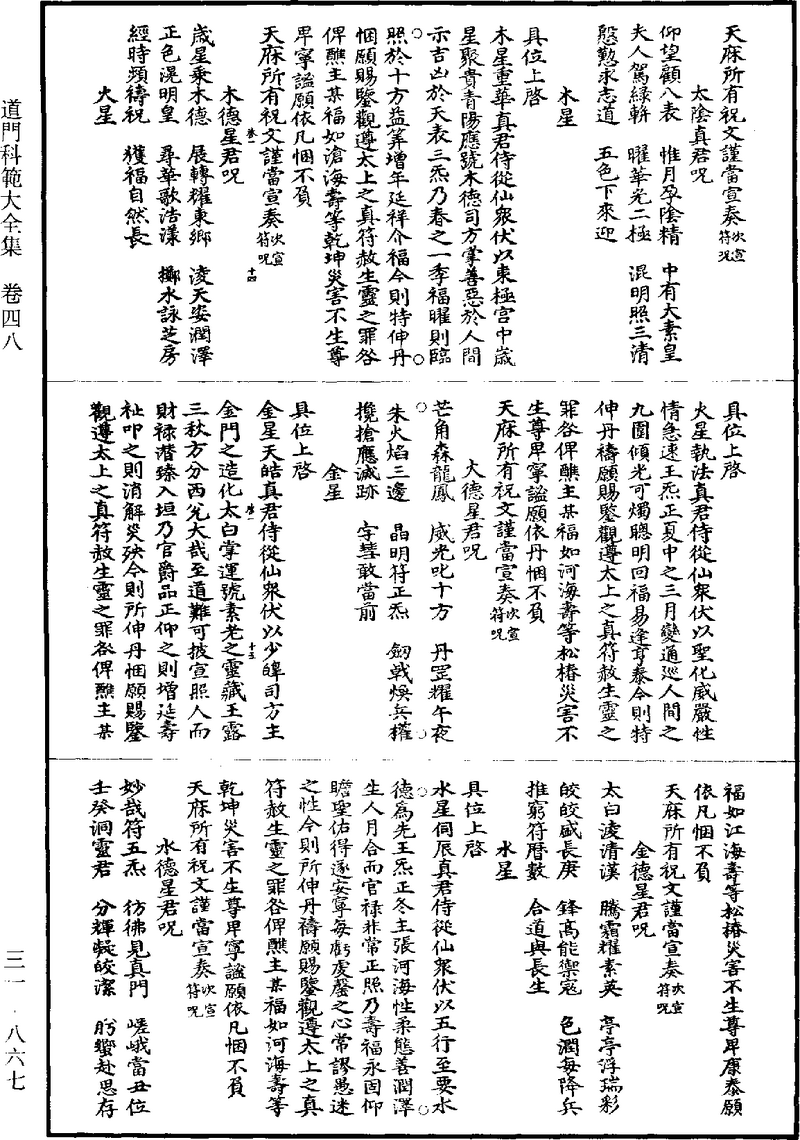 道門科範大全集　卷四八
三一・八六七
天庥所有祝文謹當宣奏次宣符咒
太陰真君咒
仰望顧八表　惟月孕陰精　中有大素皇
夫人駕緑軿　曜華光二極　混明照三清
慇懃求志道　五色下來迎
木星
具位上啓
木星重華真君侍從仙眾伏以東極宮中歲
星聚貴青陽應號木德司方掌善惡於人間
示吉凶於天表三炁乃春之一季福曜則臨
照於十方益筭增年延祥介福今則特伸丹
悃願賜鑒觀遵太上之真符赦生靈之罪咎
俾醮主某福如滄海壽等乾坤災害不生尊
卑寧謐願依凡悃不負
天庥所有祝文謹當宣奏次宣符咒
卷一　十四
木德星君咒
歲星乘木德　展轉耀東鄉　淩天姿潤澤
正色混明皇　尋華歌浩漾　擲水詠芝房
經時頻禱祝　獲福自然長
火星
具位上啓
火星執法真君侍從仙眾伏以聖化威嚴性
情急速王炁正夏中之三月變通巡人間之
九圍傾光可燭聰明回福易逢亨泰今則特
伸丹禱願賜鑒觀遵太上之真符赦生靈之
罪咎俾醮主某福如河海壽等松椿災害不
生尊卑寧謐願依丹悃不負
天庥所有祝文謹當宣奏次宣符咒
火德星君咒
芒角森龍鳳　威光叱十方　丹罡耀午夜
朱火焰三邊　晶明符正炁　劒戟煥兵權
攙搶應滅跡　孛彗敢當前
金星
具位上啓
金星天皓真君侍從仙眾伏以少皡司方主
卷一　十五
金門之造化太白掌運號素老之靈藏玉露
三秋方分西兊大哉至道難可披宣照人而
財禄潛臻入垣乃官爵品正仰之則增延壽
祉叩之則消解災殃今則所伸丹悃願賜鑒
觀遵太上之真符赦生靈之罪咎俾醮主某
福如江海壽等松椿災害不生尊卑康泰願
依凡悃不負
天庥所有祝文謹當宣奏次宣符咒
金德星君咒
太白淩清漢　騰霜耀素英　亭亭浮瑞彩
皎皎盛長庚　鋒高能禦寇　色潤每降兵
推窮符曆數　合道與長生
水星
具位上啓
水星伺辰真君侍從仙眾伏以五行至要水
德為先王炁正冬主張河海性柔態善潤澤
生人月合而官禄非常正照乃壽福永固仰
瞻聖佑得遂安寧每虧虔罄之心常謬愚迷
之性今則所伸丹禱願賜鑒觀遵太上之真
符赦生靈之罪咎俾醮主某福如河海壽等
乾坤災害不生尊卑寧謐願依凡悃不負
天庥所有祝文謹當宣奏次宣符咒
水德星君咒
妙哉符五炁　彷彿見真門　嵯峨當丑位
壬癸洞靈君　分輝凝皎潔　肹蠁赴思存